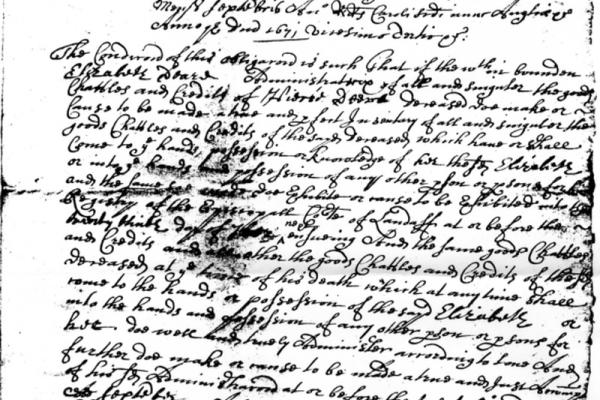 Mens Septebris Ano Rdis Caroli Scdi nunc Angliæ &c
Annoq̃ Dnī 1671 vicesimo
The Condicon of this obligacon is such That if the within bounden
Elizabeth Deere Administratrix of all and singuler the goods
Chattles and Creditts of Deere deceased doe make or
Cause to be made a true and pfect Inventory of all and singuler the
goods Chattles and Creditts of the said deceased which have or shall
Come to ye hands possession or knowledge of her the sd Elizabeth
or into ye hands possession of any other pson or psons for her
and the same soe made doe Exhibite or cause to be Exhibited into the
Registry of the Episcopall Cort of Landaff at or before the
day of next ensueing And the same goods Chattles
and Creditts and all other the goods Chattles and Creditts of the sd
deceased at ye time of his death which at any time shall
come to the hands or possession of the sayd Elizabeth or
into the hands and possession of any other pson or psons for
her doe well and truely Administer according to Law And
further doe make or cause to be made a true and Just Accompt
of his sd Administracon at or before the
Septebris